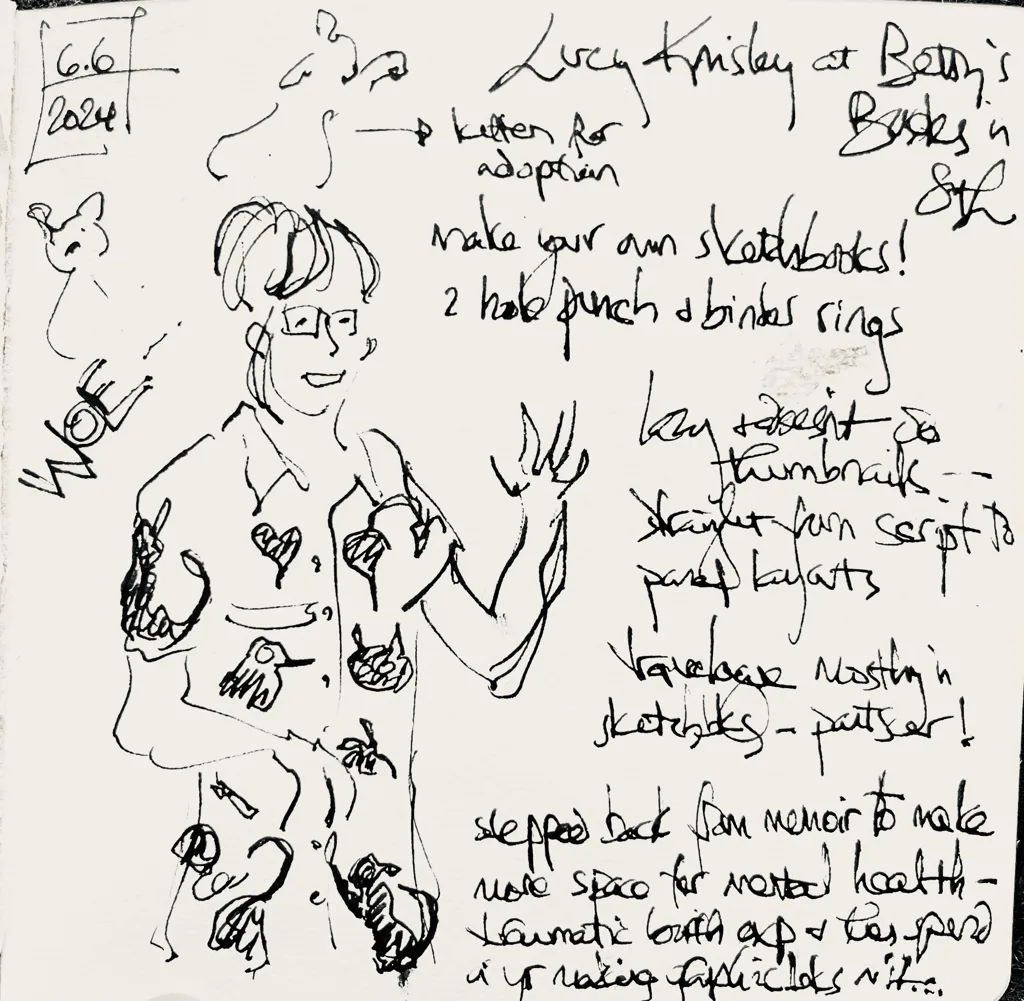 6.6
2024
Lucy Knisley at Betty's
Books in
StL
kitten for
adoption
make your own sketchbooks!
2 hole punch & binder rings
lazy & doesn't do
thumbnails --
straight from script to
panel layouts
travelogue mostly in
sketchbks -
"WOE"
stepped back from memoir to make
more space for mental health -
traumatic birth exp &
yr making graphic bks